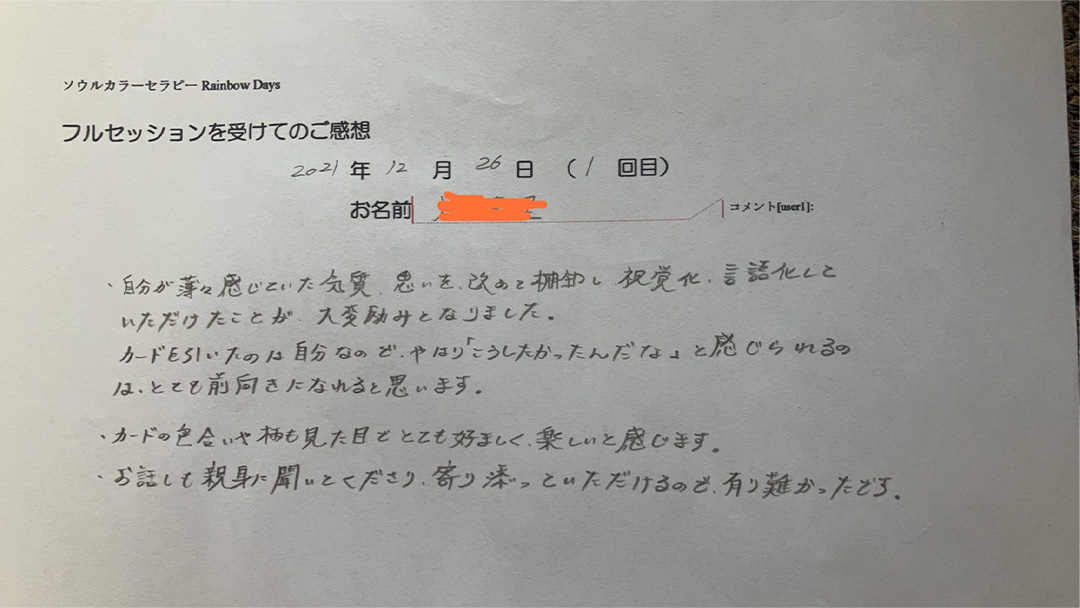 ソウルカラーセラピー Rainbow Days
フルセッションを受けてのご感想
2021 年 12 月 26 日 (1 回目)
お名前
コメント[user1]:
・自分が薄々感じていた気質、思いを、改めて棚卸し 視覚化、言語化して
いただけたことが、大変励みとなりました。
カードを引いたのは自分なので、やはり「こうしたかったんだな」と感じられるの
は、とても前向きになれると思います。
・カードの色合いや柄も見た目でとても好ましく、楽しいと感じます。
・お話しも親身に聞いてくださり、寄り添っていただけるので、有り難かったです。